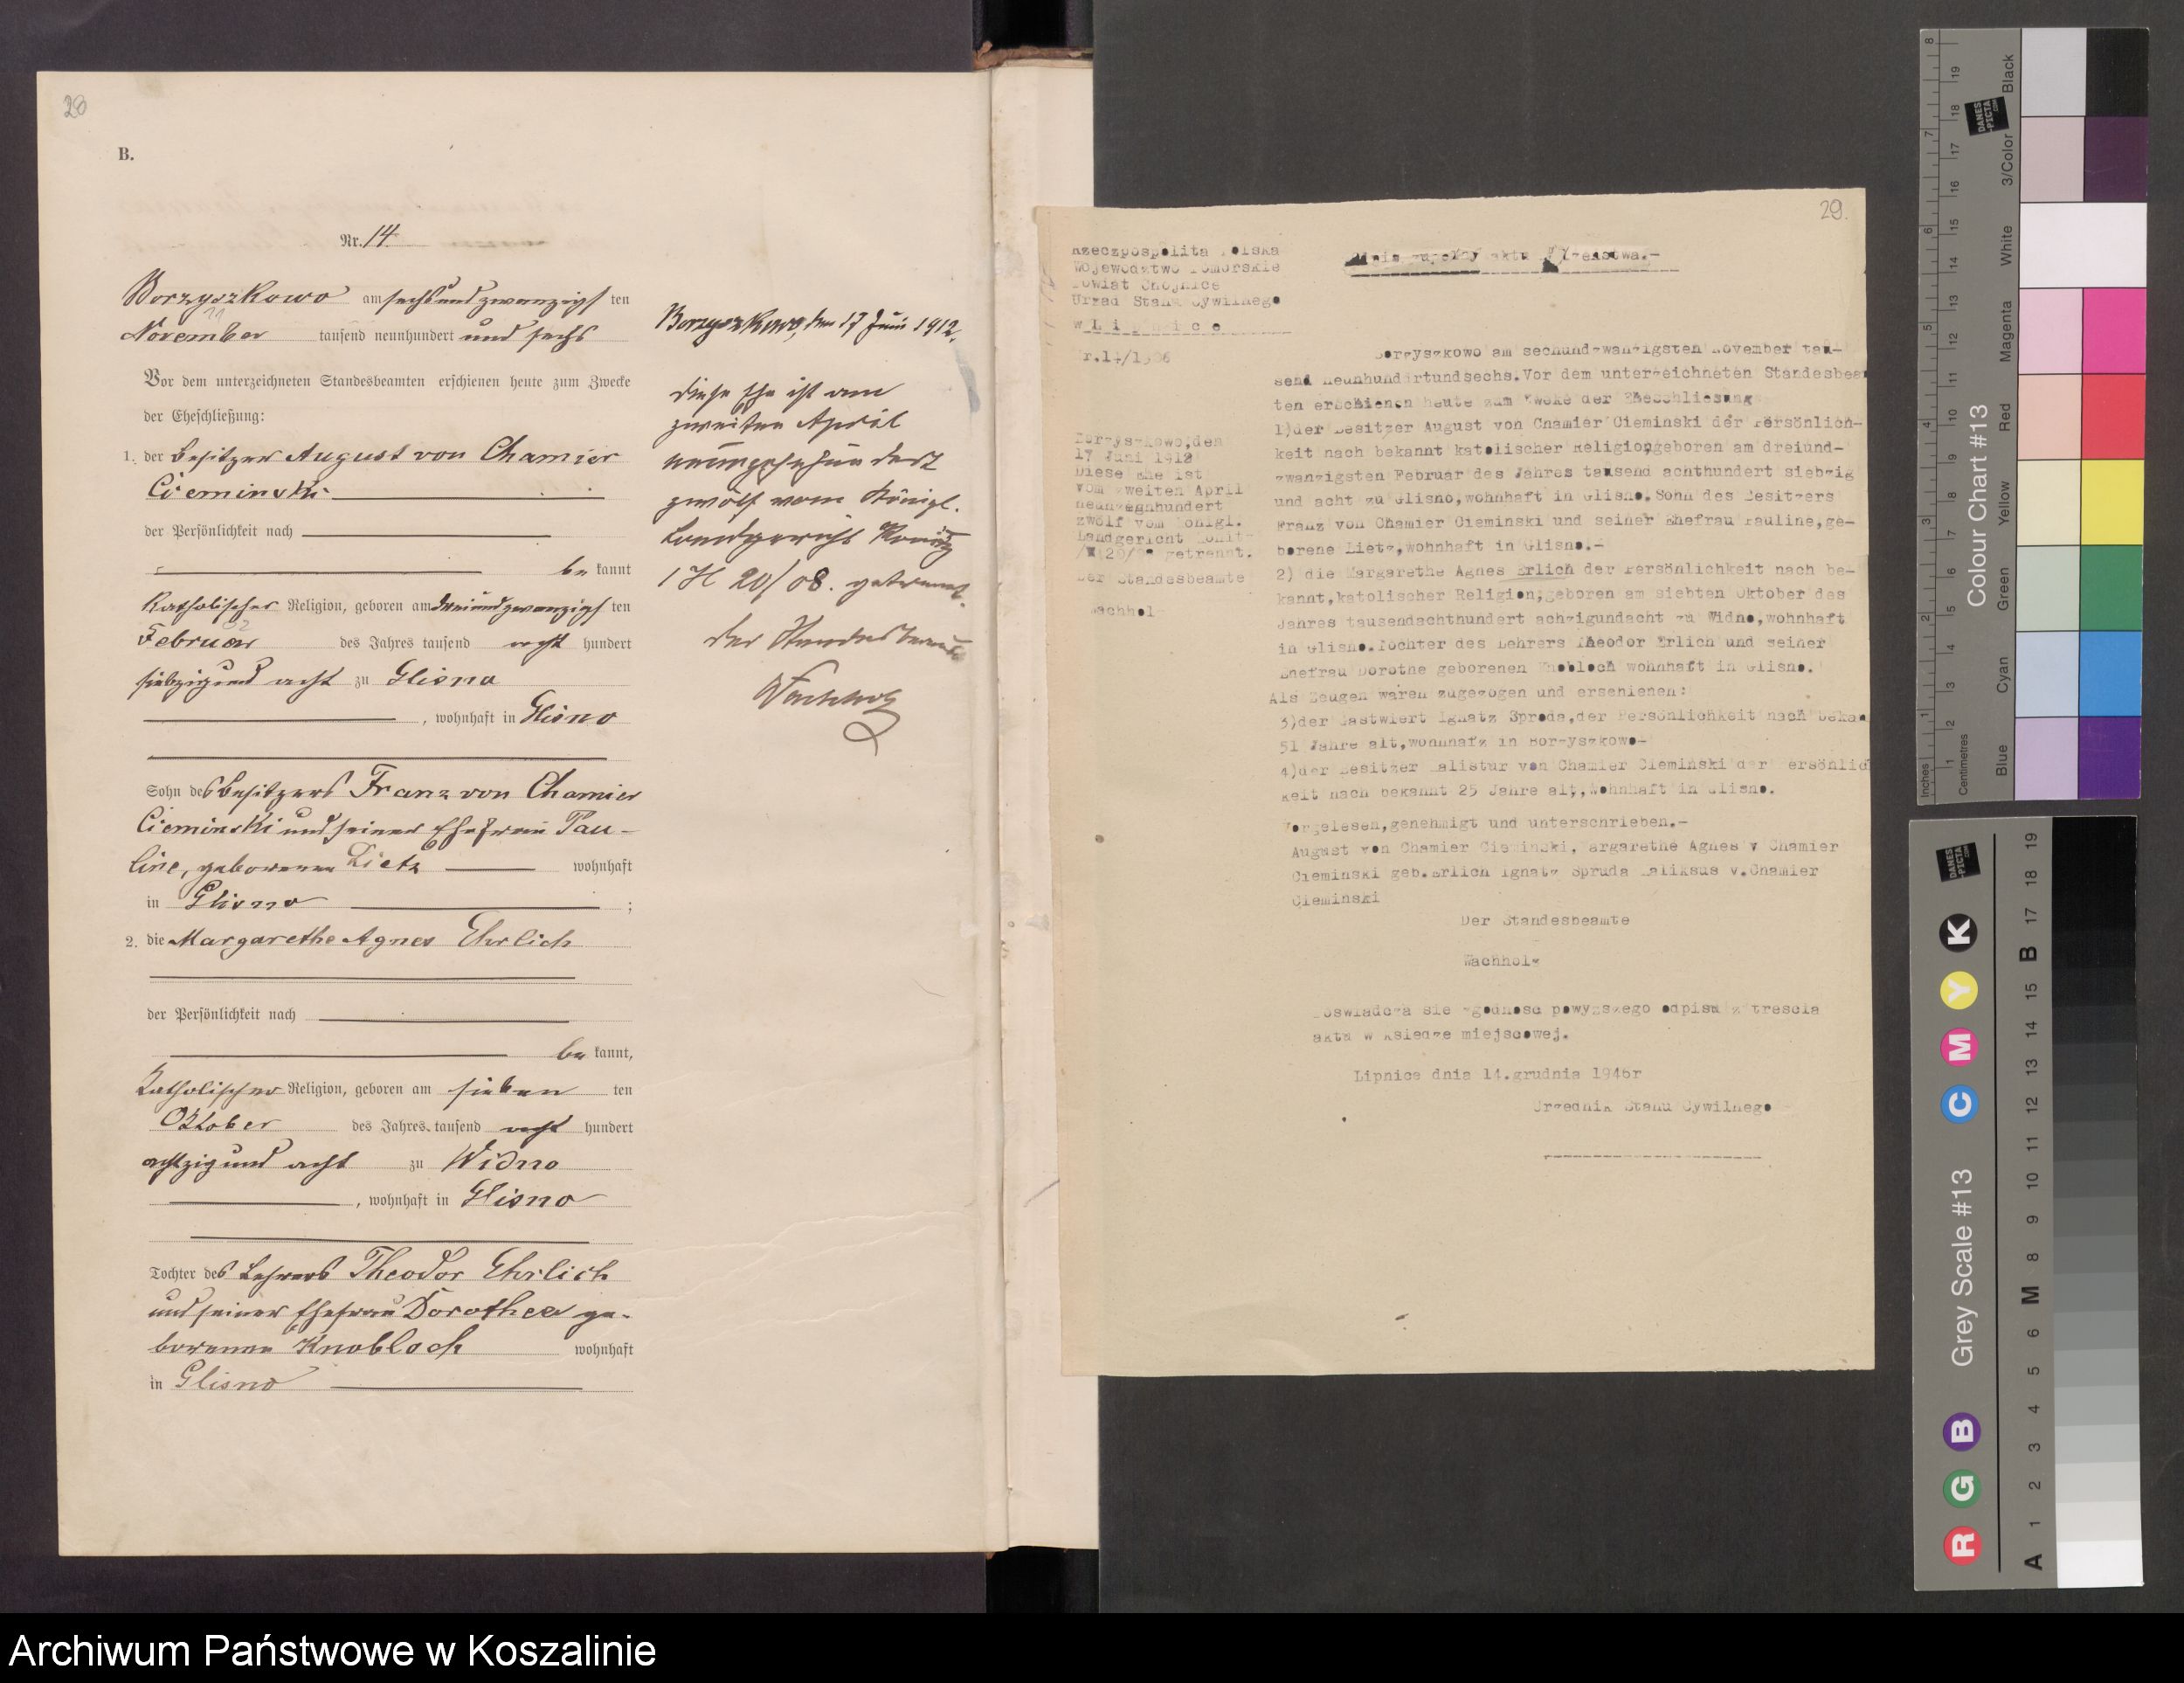 28
B.
Nr. 14
Borzyszkowo am sechsundzwanzigs ten
November tausend neunhundert und sechs
11
Vor dem unterzeichneten Standesbeamten erschienen heute zum Zwecke
der Eheschließung:
1. der Besitzer August von Chamier
Cieminski
der Persönlichkeit nach
be kannt
katholischer Religion, geboren am dreiundzwanzigs ten
Februar des Jahres tausend acht hundert
02
siebzig und acht zu Glisno
, wohnhaft in Glisno
Sohn des Besitzers Franz von Chamier
Cieminski und seiner Ehefrau Pau-
line, geborenen Lietz wohnhaft
in Glisno ;
2. die Margarethe Agnes Ehrlich
der Persönlichkeit nach
be kannt,
katholischer Religion, geboren am sieben ten
Oktober des Jahres tausend acht hundert
achtzig und acht zu Widno
, wohnhaft in Glisno
Tochter des Lehrers Theodor Ehrlich
und seiner Ehefrau Dorothea ge-
borenen Knobloch wohnhaft
in Glisno
Borzyszkowo, den 17 Juni 1912.
Diese Ehe ist am
zweiten April
neunzehnhundert
zwölf vom Königl.
Landgericht Konitz
1 H 20/08. getrennt.
Der Standesbeamte
Wachholz
29.
Rzeczpospolita Polska
Województwo Pomorskie
Powiat Chojnice
Urząd Stanu Cywilnego
w L i p n i c e
Nr.14/1906
Borzyszkowo,den
17 Juni 1912
Diese Ehe ist
vom zweiten April
neunzehnhundert
zwölf vom Königl.
Landgericht Konitz-
20/08 getrennt.
Der Standesbeamte
Wachholz
Odpis zupełny aktu małżeństwa.-
Borzyszkowo am sechundzwanzigsten November tau-
send neunhundertundsechs.Vor dem unterzeichneten Standesbeam
ten erschienen heute zum Zweke der Eheschliesung
1)der Besitzer August von Chamier Cieminski der Persönlich-
keit nach bekannt katolischer Religion,geboren am dreiund-
zwanzigsten Februar des Jahres tausend achthundert siebzig
und acht zu Glisno,wohnhaft in Glisno.Sohn des Besitzers
Franz von Chamier Cieminski und seiner Ehefrau Pauline,ge-
borene Lietz,wohnhaft in Glisno.-
2) die Margarethe Agnes Erlich der Persönlichkeit nach be-
kannt,katolischer Religion,geboren am siebten Oktober des
Jahres tausendachthundert achzigundacht zu Widno,wohnhaft
in Glisno.Tochter des Lehrers Theodor Erlich und seiner
Ehefrau Dorothe geborenen Knobloch wohnhaft in Glisno.
Als Zeugen waren zugezogen und erschienen:
3)der Gastwiert Ignatz Spreda,der Persönlichkeit nach bekan
51 Jahre alt,wohnhafz in Borzyszkowo-
4)der Besitzer Kalistur von Chamier Cieminski der Persönlich
keit nach bekannt 25 Jahre alt,Wohnhaft in Glisno.
Vorgelesen,genehmigt und unterschrieben.-
August von Chamier Cieminski,Margarethe Agnes v Chamier
Cieminski geb.Erlich Ignatz Spruda Kaliksus v.Chamier
Cieminski
Der Standesbeamte
Wachholz
Poswiadcza sie zgodnosc powyzszego odpisu z trescia
aktu w ksiedze miejscowej.
Lipnice dnia 14.grudnia 1946r
Urzednik Stanu Cywilnego
Colour Chart #13
Inches
Centimetres
Blue
Cyan
Green
Yellow
Red
Magenta
White
3/Color
Black
DANES
-PICTA
.COM
Grey Scale #13
R G B C M Y K
A 1 2 3 4 5 6 M 8 9 10 11 12 13 14 15 B 17 18 19
Archiwum Państwowe w Koszalinie